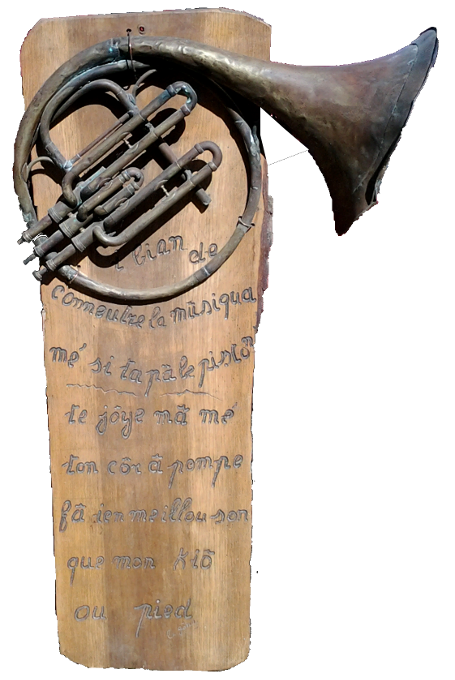 bian de
conneutre la mūsiqua
mé si ta pā le pistõ
te jôye mā mé
ton côr ā pompe
fā ien meillou son
que mon kiõ
au pied